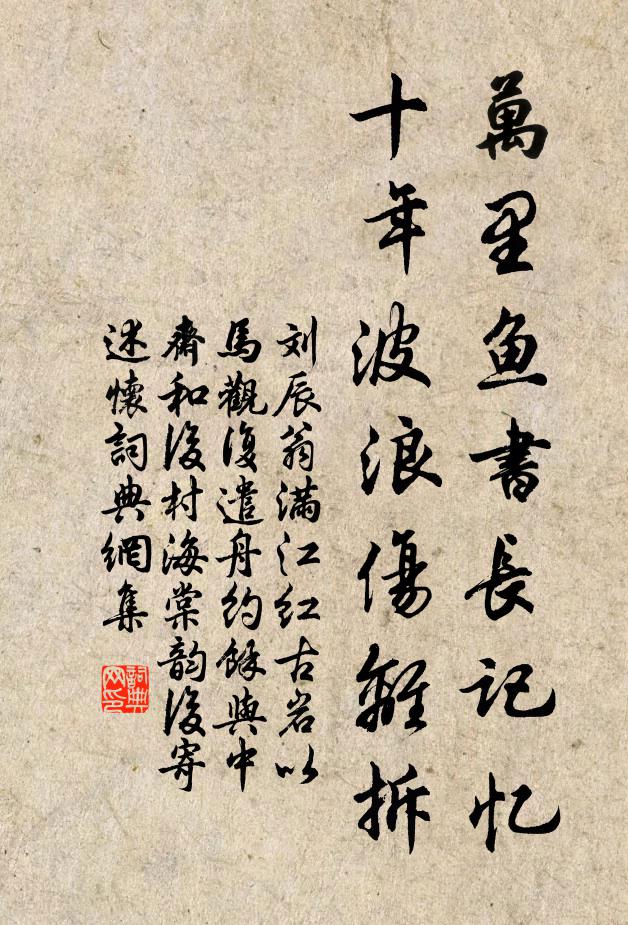 萬里鱼書長记忆
十年波浪傷離拆
刘辰翁满江红古岩以
馬觀復遣舟約餘與中
齋和後村海棠韵後寄
述懷詞典網集
詞典
网印